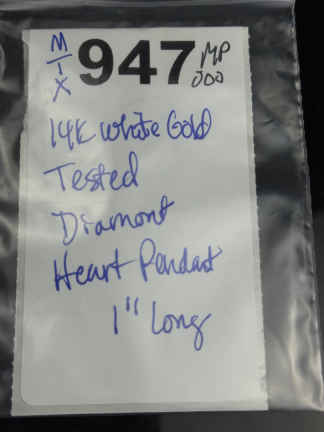 M
I
X
947
MP
500
14K White Gold
Tested
Diamont
Heart Pendant
1" Long